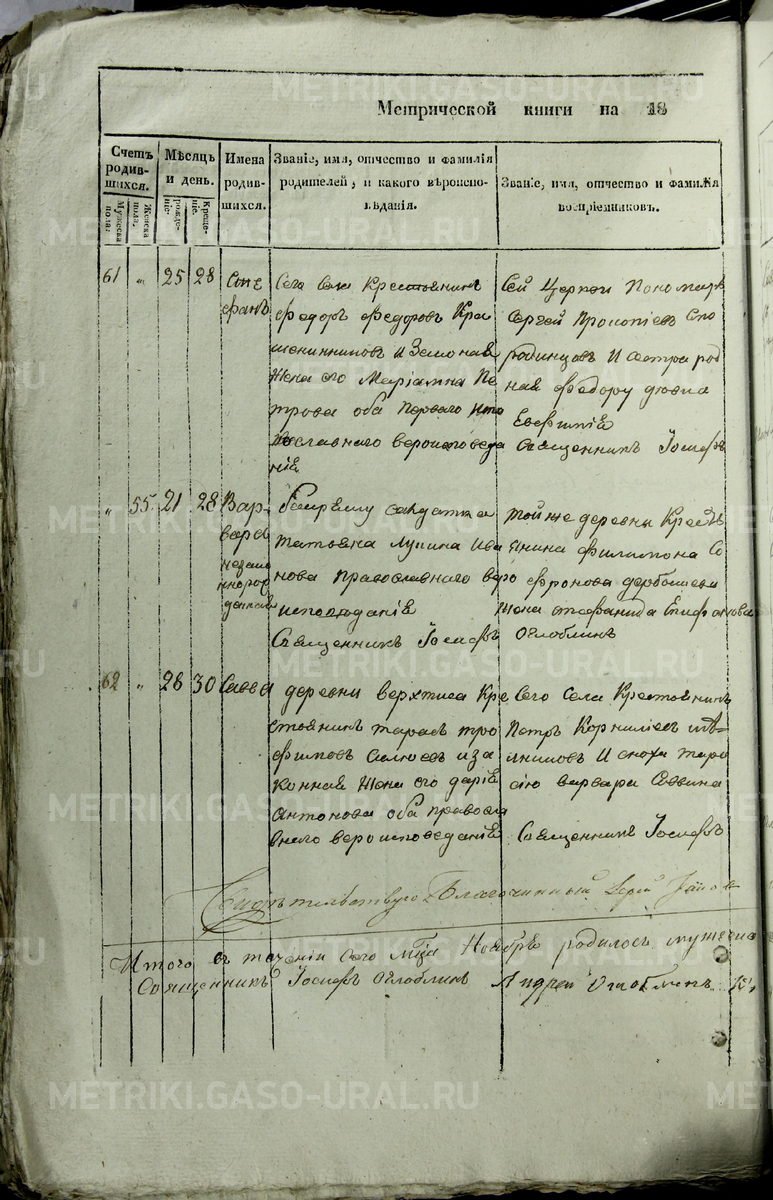 Метрической книги на 18
Счетъ родив-
шихся.
Мужеска пола.
Женска пола.
Мѣсяцъ
и день.
рожде-
ніе.
Креще-
ніе.
Имена
родив-
шихся.
Званіе, имя, отчество и фамилія
родителей, и какого вѣроиспо-
вѣданія.
Званіе, имя, отчество и фамилія
воспріемниковъ.
61 „ 25 28 Сте
фанъ
Сего села Крестьянинъ
Федоръ Федоровъ Кра
шенинниковъ и законная
Жена его Маріамна Пе
трова оба перваго
вославнаго вероисповеда
нія
Сей Церкви Пономарь
Сергей Прокопіевъ Сло
родинцовъ И сестра род
ная Федору девка
Евфимія
Священникъ Іосифъ
„ 55. 21 28 Вар-
вара
незако
ннорож
денная
солдатка
Татьяна Лупина Ива
нова православнаго веро
исповеданія
Священникъ Іосифъ
Той же деревни Кресть
янина Филимона Со
фронова
Жена Стефанида Епифанова
Оглоблинъ
62 „ 28 30 Савва
деревни верхтиса Кре
стьянинъ Тарасъ Тро
фимовъ и за
конная Жена его Дарія
Антонова оба правосла
внаго вероисповеданія
Сего Села Крестьянинъ
Петръ Корниліевъ мѣ-
лниковъ И сноха Тара
сію варвара Саввина
Священникъ Іосифъ
Свидѣтельствую Благочинный
Итого въ теченіи сего м-ца Ноября родилось мужеска
Священникъ Іосифъ Оглоблинъ Андрей Оглоблинъ
METRIKI.GASO-URAL.RU